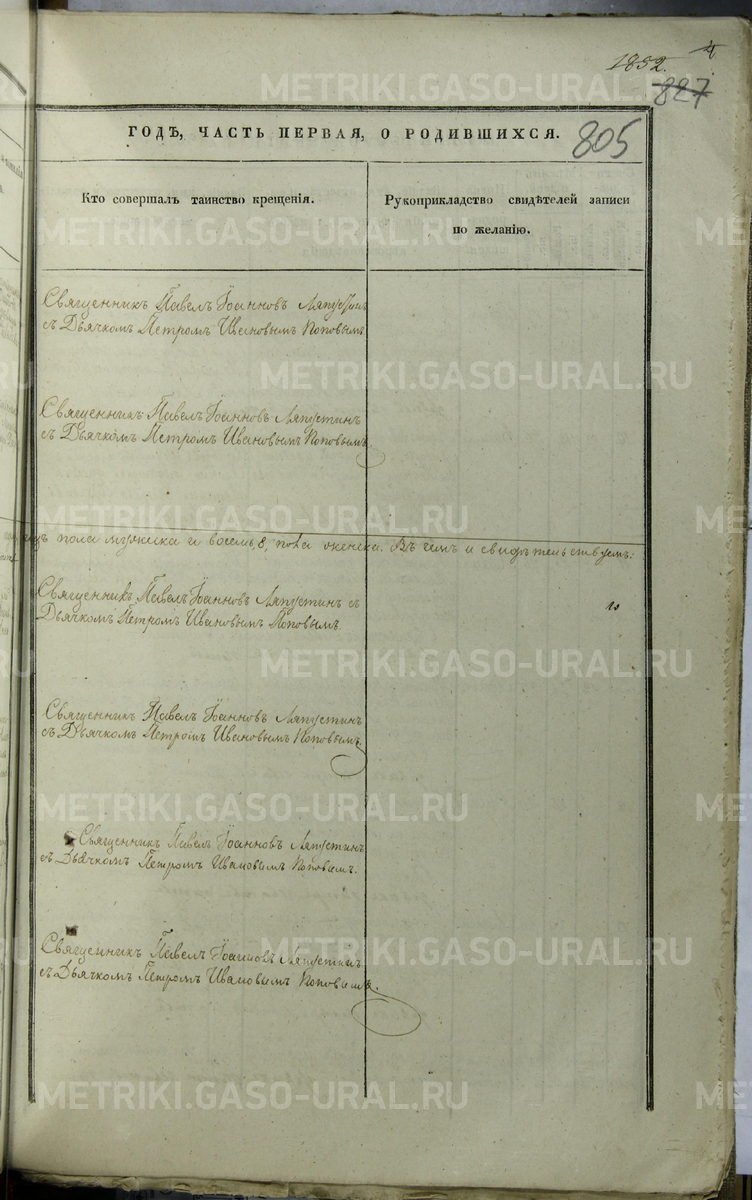 1852.
4
827
805
ГОДѢ, ЧАСТЬ ПЕРВАЯ, О РОДИВШИХСЯ.
Кто совершалъ таинство крещенія.
Рукоприкладство свидѣтелей записи
по желанію.
Священникъ Павелъ Іоанновъ Ляпустинъ
съ Дьячкомъ Петромъ Ивановымъ Поповымъ.
Священникъ Павелъ Іоанновъ Ляпустинъ
съ Дьячкомъ Петромъ Ивановымъ Поповымъ.
пола мужска и восемь, 8, пола женска. Въ чемъ и свидѣтельствуемъ:
Священникъ Павелъ Іоанновъ Ляпустинъ съ
Дьячкомъ Петромъ Ивановымъ Поповымъ.
Священникъ Павелъ Іоанновъ Ляпустинъ
съ Дьячкомъ Петромъ Ивановымъ Поповымъ.
Священникъ Павелъ Іоанновъ Ляпустинъ
съ Дьячкомъ Петромъ Ивановымъ Поповымъ.
Священникъ Павелъ Іоанновъ Ляпустинъ
съ Дьячкомъ Петромъ Ивановымъ Поповымъ.
METRIKI.GASO-URAL.RU